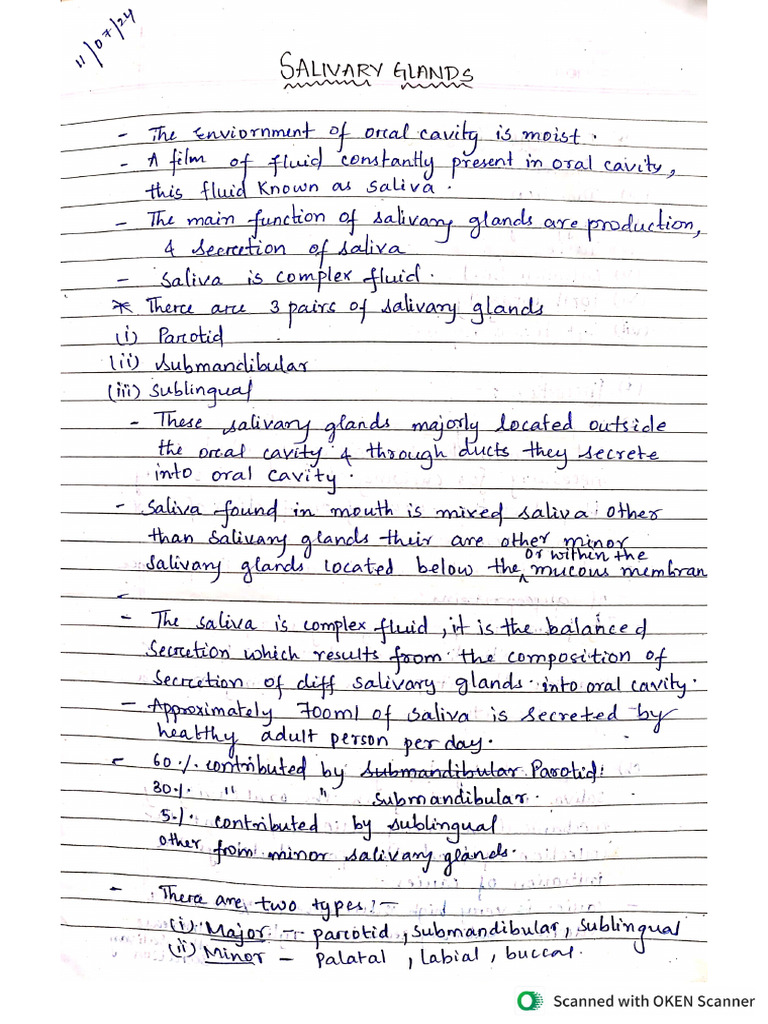 11/07/24
SALIVARY GLANDS
- The Enviornment of oral cavity is moist.
- A film of fluid constantly present in oral cavity,
this fluid Known as saliva.
- The main function of salivary glands are production,
& secretion of saliva
- saliva is complex fluid.
* There are 3 pairs of salivary glands
(i) Parotid
(ii) submandibular
(iii) sublingual
- These salivary glands majorly located outside
the oral cavity & through ducts they secrete
into oral cavity.
- saliva found in mouth is mixed saliva. other
than salivary glands their are other minor
or within the
salivary glands located below the mucous membran
-
- The saliva is complex fluid, it is the balanced
secretion which results from the composition of
secretion of diff salivary glands into oral cavity.
- Approximately 700ml of saliva is secreted by
healthy adult person per day.
- 60% contributed by submandibular Parotid.
30% " " submandibular.
5% contributed by sublingual
other from minor salivary glands.
- There are two types:-
(i) Major - parotid, submandibular, sublingual
(ii) Minor - palatal, labial, buccal.
Scanned with OKEN Scanner